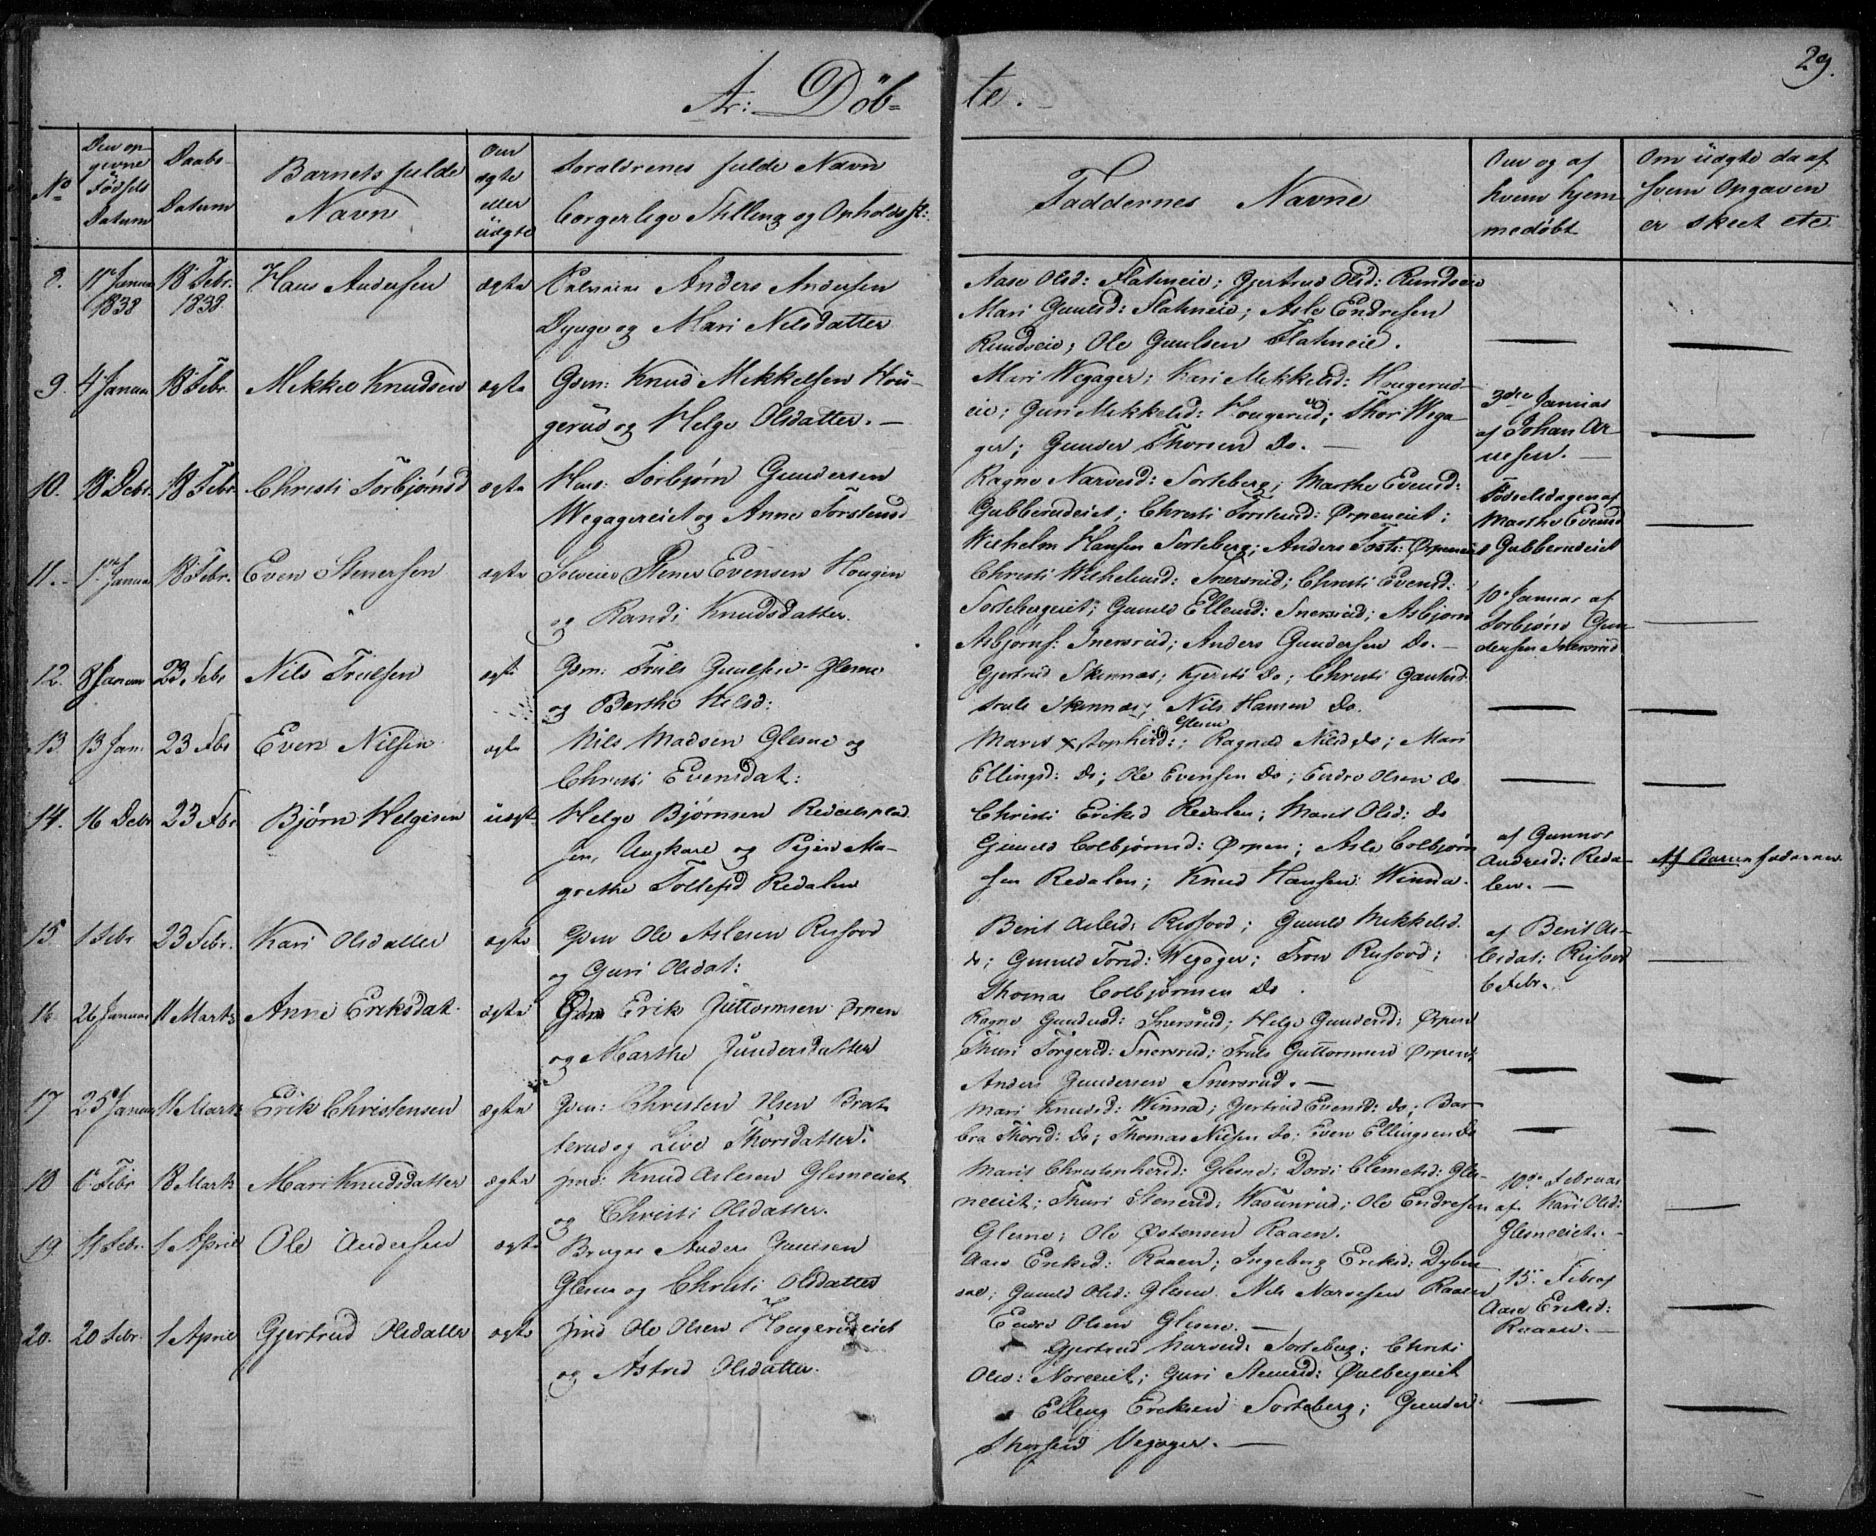 29.
Ar: Döb-
te.
No
Den op-
gevne
Födsels
Datum
Daabs-
Datum
Barnets fulde
Navn
Om
ægte
eller
uægte
Foraldrenes fulde Navn
borgerlige Stilling og Opholdsst:
Faddernes Navne
Om og af
hvem hjem
medöbt
Om uægte da af
hvem Opgaven
er skeet etc
8. 11 Januar 18 Febr. Hans Andersen ægte Anders Andersen
1838 1838. og Mari Nilsdatter
Aase Olsd: Flatneie; Gjertrud Olsd: Rundseie
Mari Guulsd: Flatneie; Asle Endresen
Rundseie; Ole Guulsen Flatneie.
9. 4 Januar 18 Febr. Mekkel Knudsen ægte Gdm: Knud Mekkelsen Hou-
gerud og Helge Olsdatter. -
Mari Wegager; Kari Mekkelsd: Hougerud-
eie; Guri Mekkelsd: Hougerud; Thor Wega-
ger; Gunder Thorsen do. -
3die Januar
af Johan Ar-
nesen. -
10. 18 Debr. 18 Febr. Christi Torbjørnsd ægte Huus: Torbjørn Gundersen
Wegagereiet og Anne Torstensd
Ragne Narvesd: Sorteberg; Marthe Evensd:
Gubberudeiet; Christi Torstensd: Ørpeneiet;
Wilhelm Hansen Sorteberg; Anders Torst: Ørpeneiet
Fødselsdagen af
Marthe Evensd
Gubberudeiet
11. 1 Januar 18 Febr. Even Stenersen ægte Stener Evensen Hougen
og Randi Knudsdatter.
Christi Wilhelmsd: Snersrud; Christi Evensd:
Sortebergeiet; Gunild Ellensd: Snersrud; Asbjørn
Asbjørns: Snersrud; Anders Gundersen do. -
10 Januar af
Torbjørn Gun-
dersen Snersrud
12. 8 Januar 23 Febr Nils Trulsen ægt Gdm: Truls Guulsen Glesne
og Berthe Nilsd:
Gjertrud Skinnæs; Kjersti do; Christi
Truls Skinnæs; Nils Hansen do.
13. 13 Jan. 23 Fbr Even Nilsen ægt Nils Madsen Glesne og
Christi Evensdat:
Marit Xstophersd: Glesne; Ragnild Nilsd do; Mari
Ellingsd: do; Ole Evensen do; Endre Olsen do
14. 16 Debr 23 Fbr Bjørn Helgesen uægt. Helge Bjørnsen Redalsplad-
sen, Ungkarl og Pigen Ma-
grethe Tollefsd Redalen
Christi Eriksd Redalen; Marit Olsd: do
Gunild Colbjørnsd: Ørpen; Asle Colbjørn-
sen Redalen; Knud Hansen Winna.
af Gunnor
Andresd: Reda-
len. -
Af Barnefaderen
15. 1 Febr 23 Febr. Kari Olsdatter ægte Gdm Ole Aslesen Rusford
og Guri Olsdat:
Berit Aslesd: Rusford; Gunild Mekkelsd.
do; Gunild Tord: Wegager; Tron Rusford;
Thomas Colbjørnsen do.
af Berit As-
lesdat: Rusford
6 Febr.
16. 26 Januar 11 Marts Anne Eriksdat. ægte Gdm Erik Guttormsen Ørpen
og Marthe Gundersdatter
Ragne Gundersd: Snersrud; Helge Gundersd: Ørpen
Thuri Torgersd: Snersrud; Truls Guttormsen Ørpen;
Anders Gundersen Snersrud. -
17 25 Januar 11 Marts Erik Christensen ægte Gdm: Christen Olsen Brat-
terud og Live Thorsdatter.
Mari Knudsd: Winna; Gjertrud Evensd: do; Bar-
bra Thorsd: do; Thomas Nilsen do; Even Ellingsen do
18 6 Febr 18 Marts Mari Knudsdatter ægte Knud Aslesen Glesneeiet
og Christi Olsdatter.
Marit Christophersd: Glesne; Dordi Clemetsd: Gles-
neeiet; Thuri Stenersd; Ole Endresen
Glesne; Ole Østensen Raaen.
10de Februar
af Kari Olsd:
Glesneeiet. -
19. 11 Febr. 1 April Ole Andersen ægte Bruger Anders
Glesne og Christi Olsdatter
Aase Eriksd: Raaen; Ingeborg Eriksd:
Gunild Olsd: Glesne. Nils Narvesen Raaen
Endre Olsen Glesne. -
15. Feb af
Aase Eriksd:
Raaen. -
20. 20 Febr. 1 April Gjertrud Olsdatter ægte Ole Olsen Hougerudeiet
og Astrid Olsdatter.
Gjertrud Narvesd: Sorteberg; Christi
Olsd: Guri Stenersd:
Elling Eriksen Sorteberg; Gunder
Thorsen Wegager. -